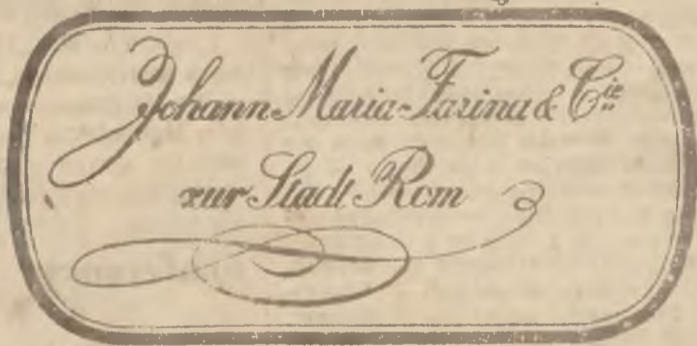 Johann Maria Farina & Cie
zur Stadt Rom